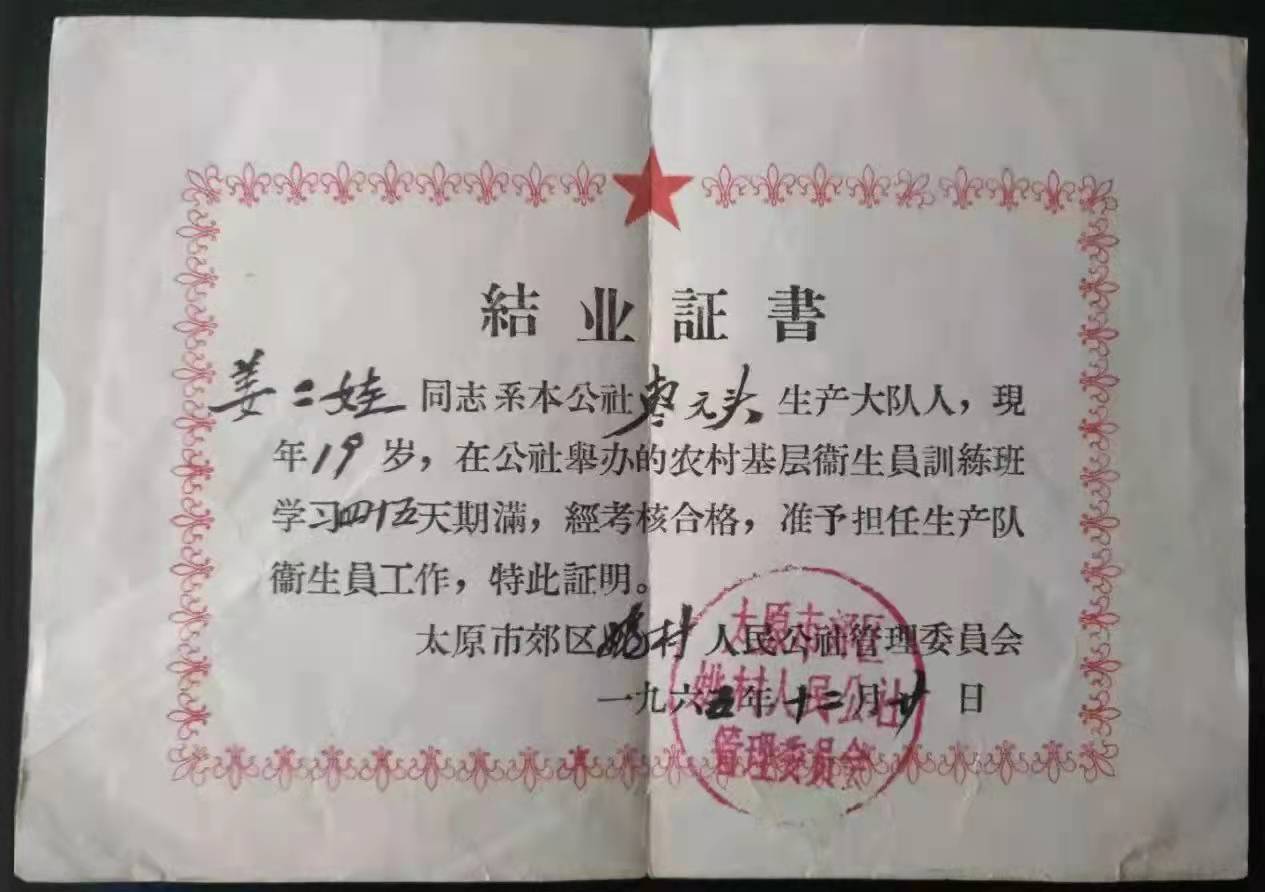 結业証書
姜二娃同志系本公社枣元头生产大队人，現
年19岁，在公社舉办的农村基层衞生員訓練班
学习四十五天期滿，經考核合格，准予担任生产队
衞生員工作，特此証明。
太原市郊区姚村人民公社管理委員会
一九六五年十二月廿日
太原市郊区
姚村人民公社
管理委員会